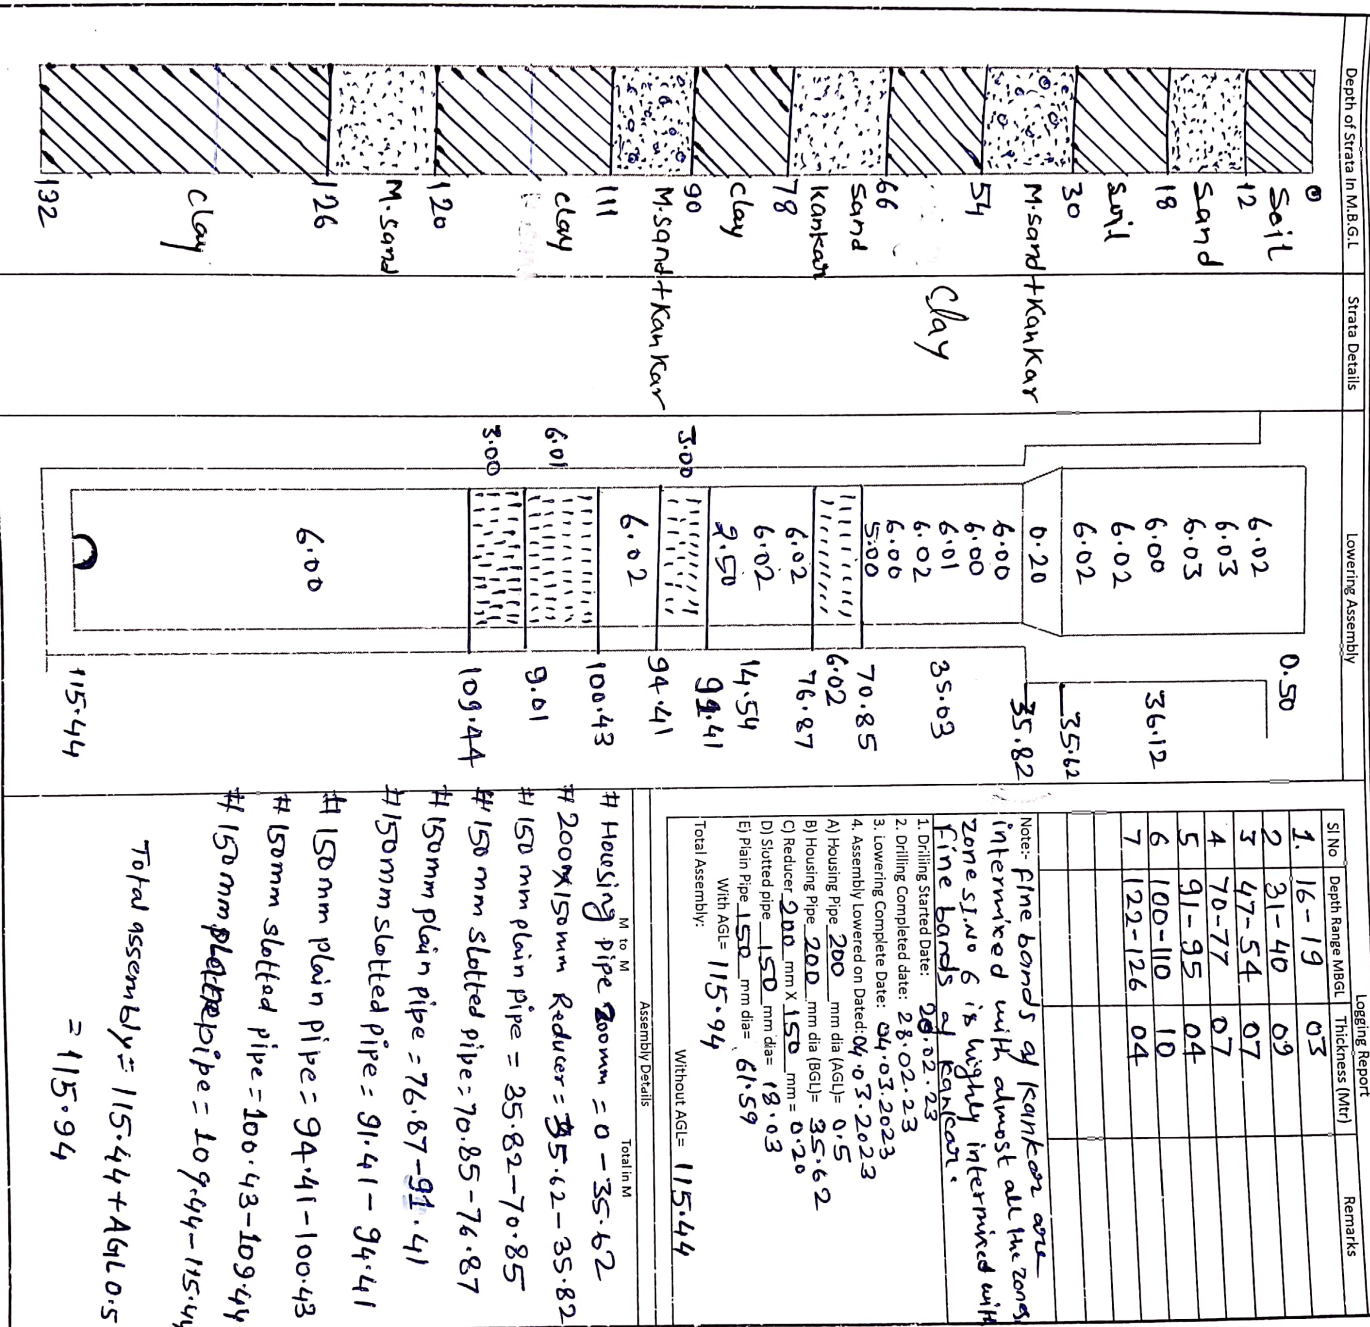 Depth of Strata In M.B.G.L
0
Soil
12
Sand
18
Soil
30
M.sand+Kankar
54
Clay
66
Sand
Kankar
78
Clay
90
M.sand+Kankar
111
Clay
120
M.sand
126
Clay
132
Strata Details
Lowering Assembly
0.50
6.02
6.03
6.03
6.00
6.02
6.02
36.12
35.62
0.20
35.82
6.00
6.00
6.01
6.02
6.00
5.00
35.03
70.85
6.02
76.87
6.02
6.02
2.50
14.54
91.41
3.00
94.41
6.02
100.43
6.01
3.00
9.01
109.44
6.00
115.44
Logging Report
Sl No Depth Range MBGL Thickness (Mtr) Remarks
1. 16-19 03
2 31-40 09
3 47-54 07
4 70-77 07
5 91-95 04
6 100-110 10
7 122-126 04
Note:- fine bands of kankar are
intermixed with almost all the zones
zone SI.NO 6 is highly intermixed with
fine bands of kankar.
1. Drilling Started Date: 26.02.23
2. Drilling Completed date: 28.02.23
3. Lowering Complete Date: 04.03.2023
4. Assembly Lowered on Dated: 04.03.2023
A) Housing Pipe 200 mm dia (AGL)= 0.5
B) Housing Pipe 200 mm dia (BGL)= 35.62
C) Reducer 200 mm X 150 mm = 0.20
D) Slotted pipe 150 mm dia= 18.03
E) Plain Pipe 150 mm dia= 61.59
With AGL= 115.94 Without AGL= 115.44
Total Assembly:
Assembly Details
M to M Total in M
# Housing pipe 200mm = 0-35.62
# 200X150mm Reducer = 35.62-35.82
# 150 mm plain pipe = 35.82-70.85
# 150 mm slotted pipe = 70.85-76.87
# 150mm plain pipe = 76.87-91.41
# 150mm slotted pipe = 91.41-94.41
# 150mm plain pipe = 94.41-100.43
# 150mm slotted pipe = 100.43-109.44
# 150 mm pipe = 109.44-115.44
Total assembly = 115.44+AGL0.5
= 115.94